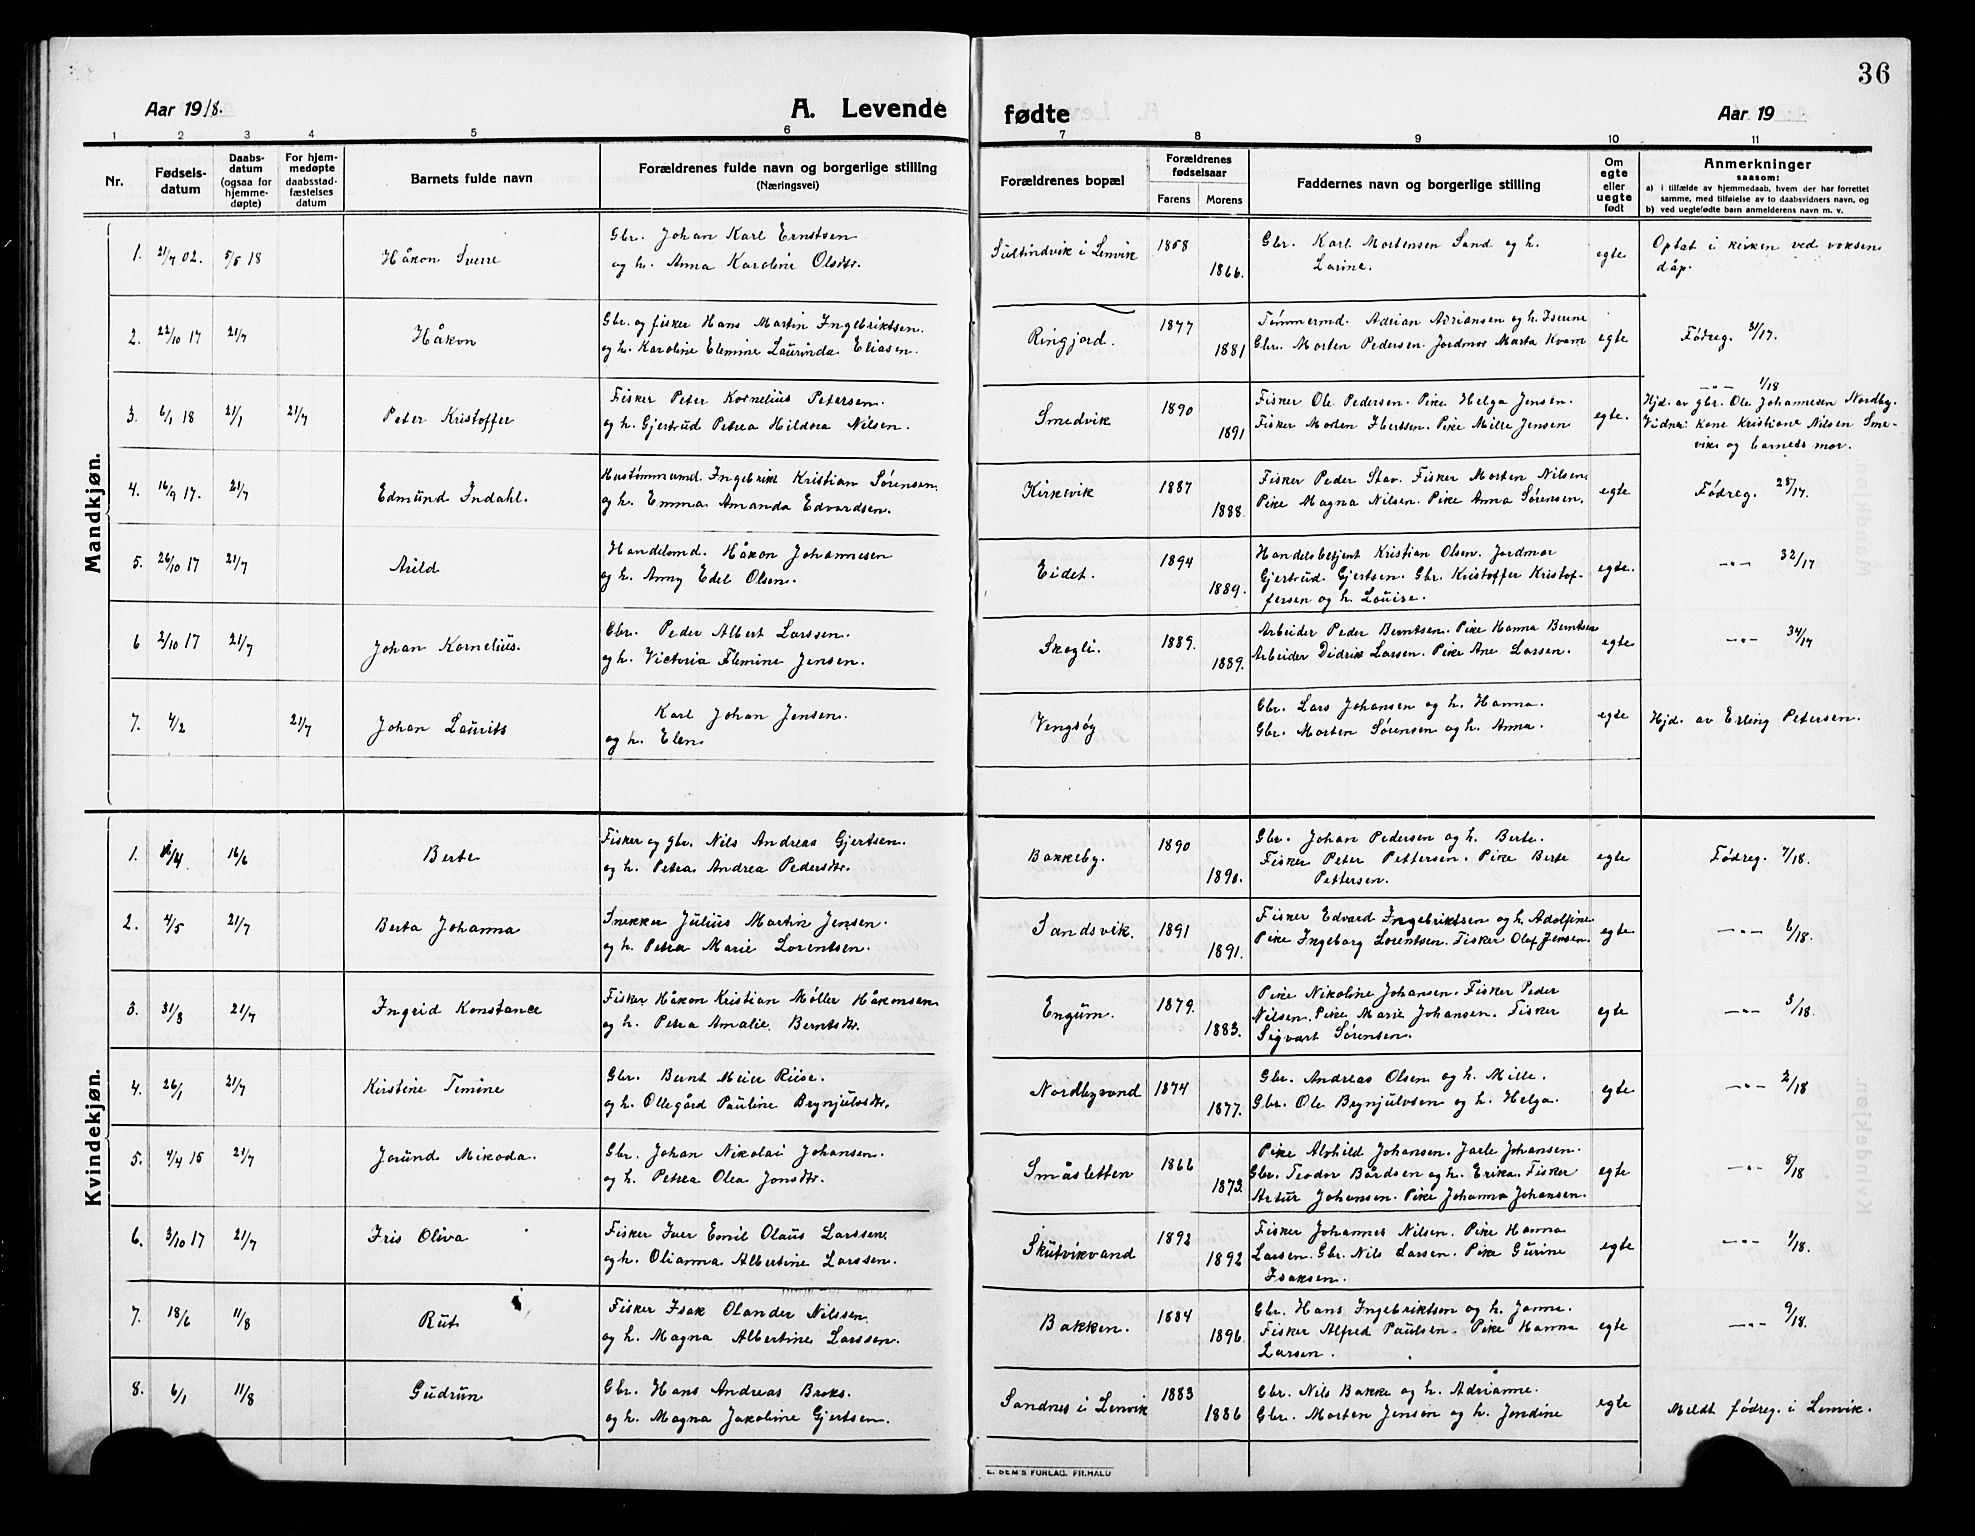 36
Aar 1918.
A. Levende fødte
Aar 19
1 2 3 4 5 6 7 8 9 10 11
Nr.
Fødselsdatum
Daabsdatum (ogsaa for hjemmedøpte)
For hjemmedøpte daabsstadfæstelses datum
Barnets fulde navn
Forældrenes fulde navn og borgerlige stilling
(Næringsvei)
Forældrenes bopæl
Forældrenes fødselsaar
Farens Morens
Faddernes navn og borgerlige stilling
Om egte eller uegte født
Anmerkninger
saasom:
a) i tilfælde av hjemmedaab, hvem der har forrettet
samme, med tilføielse av to daabsvidners navn, og
b) ved uegtefødte barn anmelderens navn m. v.
Mandkjøn.
1. 21/7 02. 5/5 18 Håkon Sverre
Gbr. Johan Karl Ernstsen
og h. Anna Karoline Olsdtr.
Sultindvik i Lenvik 1858 1866.
Gbr. Karl Mortensen Sand og h.
Larine.
egte
Optat i kirken ved voksen
dåp.
2. 22/10 17 21/7 Håkon
Gbr. og fisker Hans Martin Ingebriktsen.
og h. Karoline Elemine Laurinda Eliasen.
Ringjord. 1877 1881
Tømmermd. Adrian Adriansen og h. Iserine
Gbr. Morten Pedersen. Jordmor Marta Kvam
egte
Fødreg. 31/17.
3. 6/1 18 21/1 21/7 Peter Kristoffer
Fisker Peter Kornelius Petersen.
og h. Gjertrud Petrea Hildora Nilsen.
Smedvik 1890 1891
Fisker Ole Pedersen. Pike Helga Jensen.
Fisker Morten Ibertsen. Pike Mille Jensen
egte.
—"— 1/18
Hjd. av gbr. Ole Johannesen Nordby.
Vidner: Kone Kristiane Nilsen Sme-
vik og barnets mor.
4. 16/9 17. 21/7 Edmund Indahl.
Hustømmermd. Ingebrikt Kristian Sørensen.
og h. Emma Amanda Edvardsen.
Kirkevik 1887 1888.
Fisker Peder Stav. Fisker Morten Nilsen.
Pike Magna Nilsen. Pike Anna Sørensen.
egte
Fødreg. 28/17.
5. 26/10 17 21/7 Arild
Handelsmd. Håkon Johannesen
og h. Anny Edel Olsen.
Eidet. 1894 1889.
Handelsbetjent Kristian Olsen. Jordmor
Gjertrud Gjertsen. Gbr. Kristoffer Kristof-
fersen og h. Louise.
egte.
—"— 32/17
6 2/10 17 21/7 Johan Kornelius.
Gbr. Peder Albert Larssen.
og h. Victoria Elemine Jensen.
Skogli. 1889. 1889.
Arbeider Peder Berntsen. Pike Hanna Berntsen
Arbeider Didrik Larsen. Pike Ane Larsen.
egte
—"— 34/17
7. 4/2 21/7 Johan Laurits
Karl Johan Jensen.
og h. Elen.
Vengsøy
Gbr. Lars Johansen og h. Hanna.
Gbr. Morten Sørensen og h. Anna.
egte
Hjd. av Erling Petersen.
Kvindekjøn.
1. 16/6 Berte
Fisker og gbr. Nils Andreas Gjertsen.
og h. Petra Andrea Pedersdtr.
Bakkeby. 1890 1890.
Gbr. Johan Pedersen og h. Berte.
Fisker Peter Pettersen. Pike Berte
Pettersen.
egte
Fødreg. 7/18.
2. 4/5 21/7 Berta Johanna
Snekker Julius Martin Jensen.
og h. Petra Marie Lorentsen.
Sandsvik. 1891 1891.
Fisker Edvard Ingebriktsen og h. Adolfine
Pike Ingeborg Lorentsen. Fisker Olaf Jensen.
egte
—"— 6/18.
3. 31/3 21/7 Ingrid Konstance
Fisker Håkon Kristian Møller Håkonsen
og h. Petra Amalie Berntsdtr.
Engum. 1879. 1883.
Pike Nikoline Johansen. Fisker Peder
Nilsen. Pike Marie Johansen. Fisker
Sigvart Sørensen.
egte
—"— 3/18.
4. 26/1 21/7 Kristine Temine
Gbr. Bernt Meier Riise.
og h. Ollegård Pauline Brynjulvsdtr.
Nordbyvand 1874 1877.
Gbr. Andreas Olsen og h. Mille.
Gbr. Ole Brynjulvsen og h. Helga.
egte
—"— 2/18
5. 4/4 15 21/7 Jorund Mikoda.
Gbr. Johan Nikolai Johansen.
og h. Petrea Olea Jonsdtr.
Småsletten 1866 1873.
Pike Alvhild Johansen. Jarle Johansen.
Gbr. Teodor Bårdsen og h. Erika. Fisker
Artur Johansen. Pike Johanna Johansen.
egte
—"— 8/18
6. 3/10 17 21/7 Iris Oliva
Fisker Iver Emil Olaus Larssen
og h. Olianna Albertine Larssen.
Skutvikvand 1892 1892
Fisker Johannes Nilsen. Pike Hanna
Larsen. Gbr. Nils Larsen. Pike Gurine
Isaksen.
egte
—"— 1/18.
7. 18/6 11/8 Rut
Fisker Isak Olander Nilssen.
og h. Magna Albertine Larssen.
Bakken. 1884 1896.
Gbr. Hans Ingebriktsen og h. Janna.
Fisker Alfred Paulsen. Pike Hanna
Larsen.
egte
—"— 9/18.
8. 6/1 11/8 Gudrun
Gbr. Hans Andreas Broks.
og h. Magna Jakobine Gjertsen.
Sandnes i Lenvik 1883 1886
Gbr. Nils Bakke og h. Adrianne.
Gbr. Morten Jensen og h. Jondine
egte
Meldt fødreg. i Lenvik.
E. SEM'S FORLAG, FR.HALD